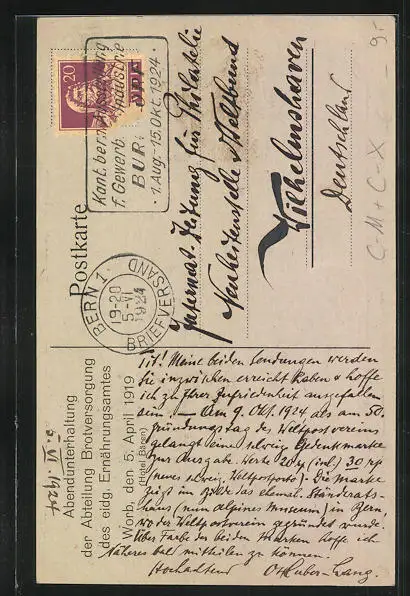 9.-
20
Kant. bern. Ausstellung
f. Gewerbe Industrie
BURGDORF
1. Aug.-15. Okt. 1924.
Postkarte
BERN 1.
19-20
5-VI
1924
BRIEFVERSAND
Internat. Zeitung für Philatelie
Weltbund
Wilhelmshaven
Deutschland
C-M+C-X
Abendunterhaltung
der Abteilung Brotversorgung
des eidg. Ernährungsamtes
Worb, den 5. April 1919
(Hotel Bären)
5. VI. 1924
Tit! Meine beiden Sendungen werden
Sie inzwischen erreicht haben & hoffe
ich zu Ihrer Zufriedenheit ausgefallen
sein. — Am 9. Okt. 1924 als am 50.
Gründungstag des Weltpostvereins
gelangt eine schweiz. Gedenkmarke
zur Ausgabe. Werte 20 & 30 rp
(neues schweiz. Weltpostporto). Die Marke
zeigt im Bilde das ehemal. Ständerats-
haus (nun alpines Museum) in Bern,
wo der Weltpostverein gegründet wurde.
Über Farbe der beiden Marken hoffe ich
Näheres bald mitteilen zu können.
Hochachtend Ott Huber-Lang.